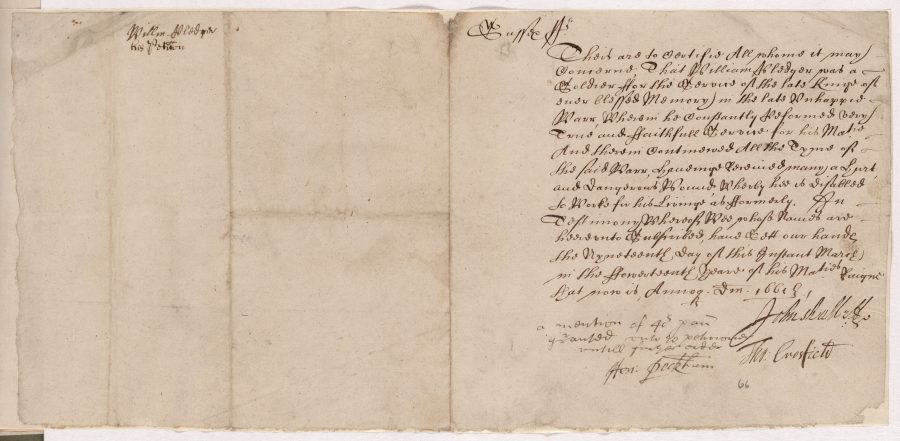 Willm Pledger
his Petition
Sussex ss
Theis are to Certifie All whome it may
Concerne, That William Pledger was a
Soldier ffor the Service of the late Kinge of
ever blessed Memory in the late Unhappie
Warr, Wherein he Constantly Performed very
True and ffaithfull Service for his Matie
And therein Continewed All the Tyme of
the said Warr, haveinge Received many a hurt
and Dangerous Wound Wherby hee is disabled
to Worke for his Livinge as fformerly. In
Testimony Whereof Wee whose Names are
hereunto Subscribed, have Sett our hande
the Nyneteenth Day of this Instant March
in the ffowerteenth Yeare of his Maties Raigne
that now is, Annoq. Dm. 1661
John
a pention of
granted unto ye petitioner
untill further order
Hen: Peckham
Tho:
66